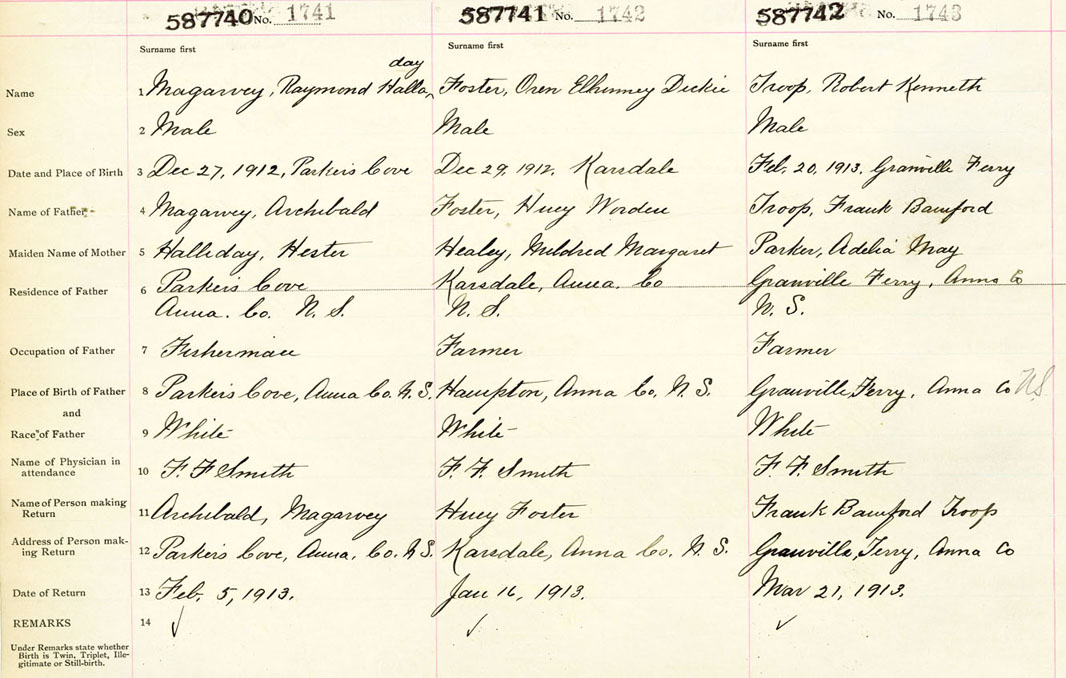 587740 No. 1741 587741 No. 1742 587742 No. 1743
Surname first Surname first Surname first
day
Name 1 Magarvey, Raymond Halla Foster, Oren Elhinney Dickie Troop, Robert Kenneth
Sex 2 Male Male Male
Date and Place of Birth 3 Dec 27, 1912, Parkers Cove Dec 29, 1912, Karsdale Feb. 20, 1913. Granville Ferry
Name of Father 4 Magarvey, Archibald Foster, Huey Worden Troop, Frank Bamford
Maiden Name of Mother 5 Halliday, Hester Healey, Mildred Margaret Parker, Adelia May
Residence of Father 6 Parkers Cove Karsdale, Anna. Co Granville Ferry, Anna Co
Anna. Co. N. S. N. S. N. S.
Occupation of Father 7 Fisherman Farmer Farmer
Place of Birth of Father 8 Parkers Cove, Anna Co. N. S. Hampton, Anna Co. N. S. Granville Ferry, Anna Co NS
and
Race of Father 9 White White White
Name of Physician in
attendance 10 F. F Smith F. F. Smith F. F. Smith
Name of Person making
Return 11 Archibald, Magarvey Huey Foster Frank Bamford Troop
Address of Person mak-
ing Return 12 Parkers Cove, Anna. Co. N S. Karsdale, Anna Co. N. S. Granville, Ferry, Anna Co
Date of Return 13 Feb. 5, 1913. Jan 16, 1913. Mar 21, 1913.
REMARKS 14
Under Remarks state whether
Birth is Twin, Triplet, Ille-
gitimate or Still-birth.